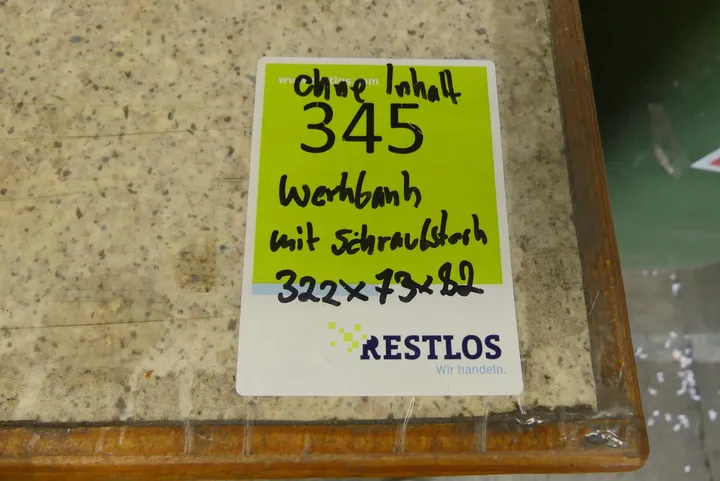 ohne Inhalt
345
Werkbank
mit Schraubstock
322x73x82
RESTLOS
Wir handeln.